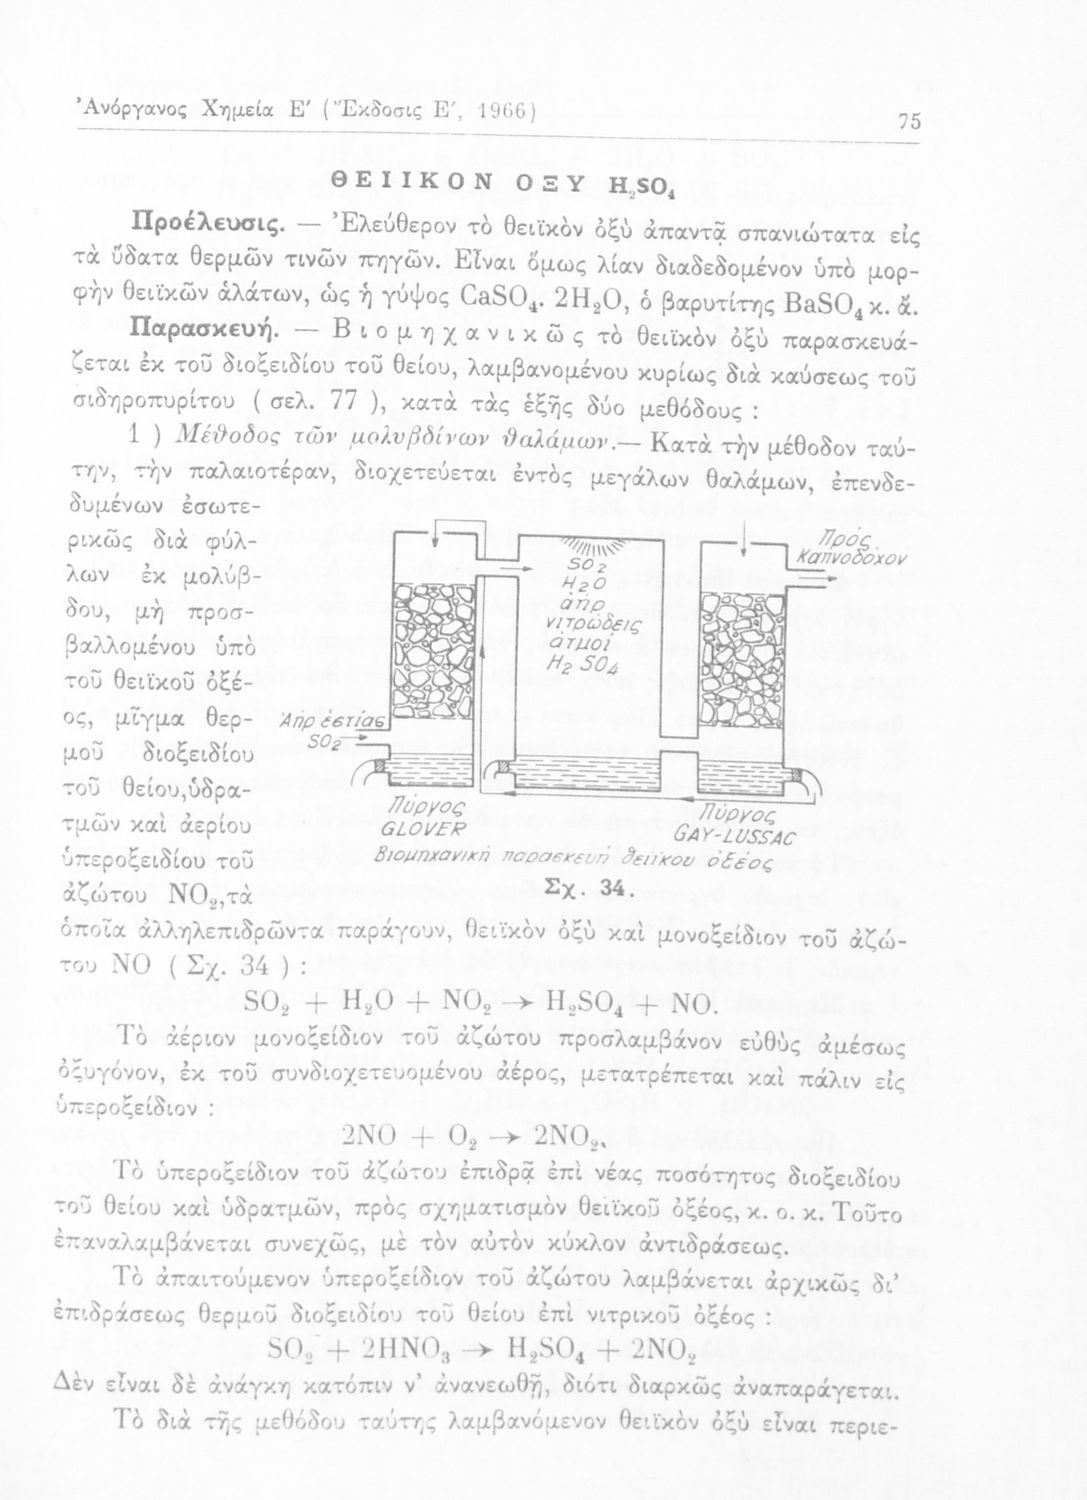 Ἀνόργανος Χημεία Ε′ ( Ἔκδοσις Ε′, 1966)
75
ΘΕΙΙΚΟΝ ΟΞΥ H₂SO₄
Προέλευσις. — Ἐλεύθερον τὸ θειϊκὸν ὀξὺ ἀπαντᾷ σπανιώτατα εἰς
τὰ ὕδατα θερμῶν τινῶν πηγῶν. Εἶναι ὅμως λίαν διαδεδομένον ὑπὸ μορ-
φὴν θειϊκῶν ἁλάτων, ὡς ἡ γύψος CaSO₄. 2H₂O, ὁ βαρυτίτης BaSO₄ κ. ἄ.
Παρασκευή. — Βιομηχανικῶς τὸ θειϊκὸν ὀξὺ παρασκευά-
ζεται ἐκ τοῦ διοξειδίου τοῦ θείου, λαμβανομένου κυρίως διὰ καύσεως τοῦ
σιδηροπυρίτου ( σελ. 77 ), κατὰ τὰς ἑξῆς δύο μεθόδους :
1 ) Μέθοδος τῶν μολυβδίνων θαλάμων.— Κατὰ τὴν μέθοδον ταύ-
την, τὴν παλαιοτέραν, διοχετεύεται ἐντὸς μεγάλων θαλάμων, ἐπενδε-
δυμένων ἐσωτε-
ρικῶς διὰ φύλ-
λων ἐκ μολύβ-
δου, μὴ προσ-
βαλλομένου ὑπὸ
τοῦ θειϊκοῦ ὀξέ-
ος, μῖγμα θερ-
μοῦ διοξειδίου
τοῦ θείου,ὑδρα-
τμῶν καὶ ἀερίου
ὑπεροξειδίου τοῦ
ἀζώτου NO₂,τὰ
Πρός
Καπνοδόχον
SO₂
H₂O
ἀήρ
νιτρώδεις
ἀτμοί
H₂SO₄
Ἀήρ ἑστίας
SO₂
Πύργος
GLOVER
Πύργος
GAY-LUSSAC
Βιομηχανική παρασκευή θειικου ὀξέος
Σχ. 34.
ὁποῖα ἀλληλεπιδρῶντα παράγουν, θειϊκὸν ὀξὺ καὶ μονοξείδιον τοῦ ἀζώ-
του NO ( Σχ. 34 ) :
SO₂ + H₂O + NO₂ → H₂SO₄ + NO.
Τὸ ἀέριον μονοξείδιον τοῦ ἀζώτου προσλαμβάνον εὐθὺς ἀμέσως
ὀξυγόνον, ἐκ τοῦ συνδιοχετευομένου ἀέρος, μετατρέπεται καὶ πάλιν εἰς
ὑπεροξείδιον :
2NO + O₂ → 2NO₂.
Τὸ ὑπεροξείδιον τοῦ ἀζώτου ἐπιδρᾷ ἐπὶ νέας ποσότητος διοξειδίου
τοῦ θείου καὶ ὑδρατμῶν, πρὸς σχηματισμὸν θειϊκοῦ ὀξέος, κ. ο. κ. Τοῦτο
ἐπαναλαμβάνεται συνεχῶς, μὲ τὸν αὐτὸν κύκλον ἀντιδράσεως.
Τὸ ἀπαιτούμενον ὑπεροξείδιον τοῦ ἀζώτου λαμβάνεται ἀρχικῶς δι’
ἐπιδράσεως θερμοῦ διοξειδίου τοῦ θείου ἐπὶ νιτρικοῦ ὀξέος :
SO₂ + 2HNO₃ → H₂SO₄ + 2NO₂
Δὲν εἶναι δὲ ἀνάγκη κατόπιν ν’ ἀνανεωθῇ, διότι διαρκῶς ἀναπαράγεται.
Τὸ διὰ τῆς μεθόδου ταύτης λαμβανόμενον θειϊκὸν ὀξὺ εἶναι περιε-